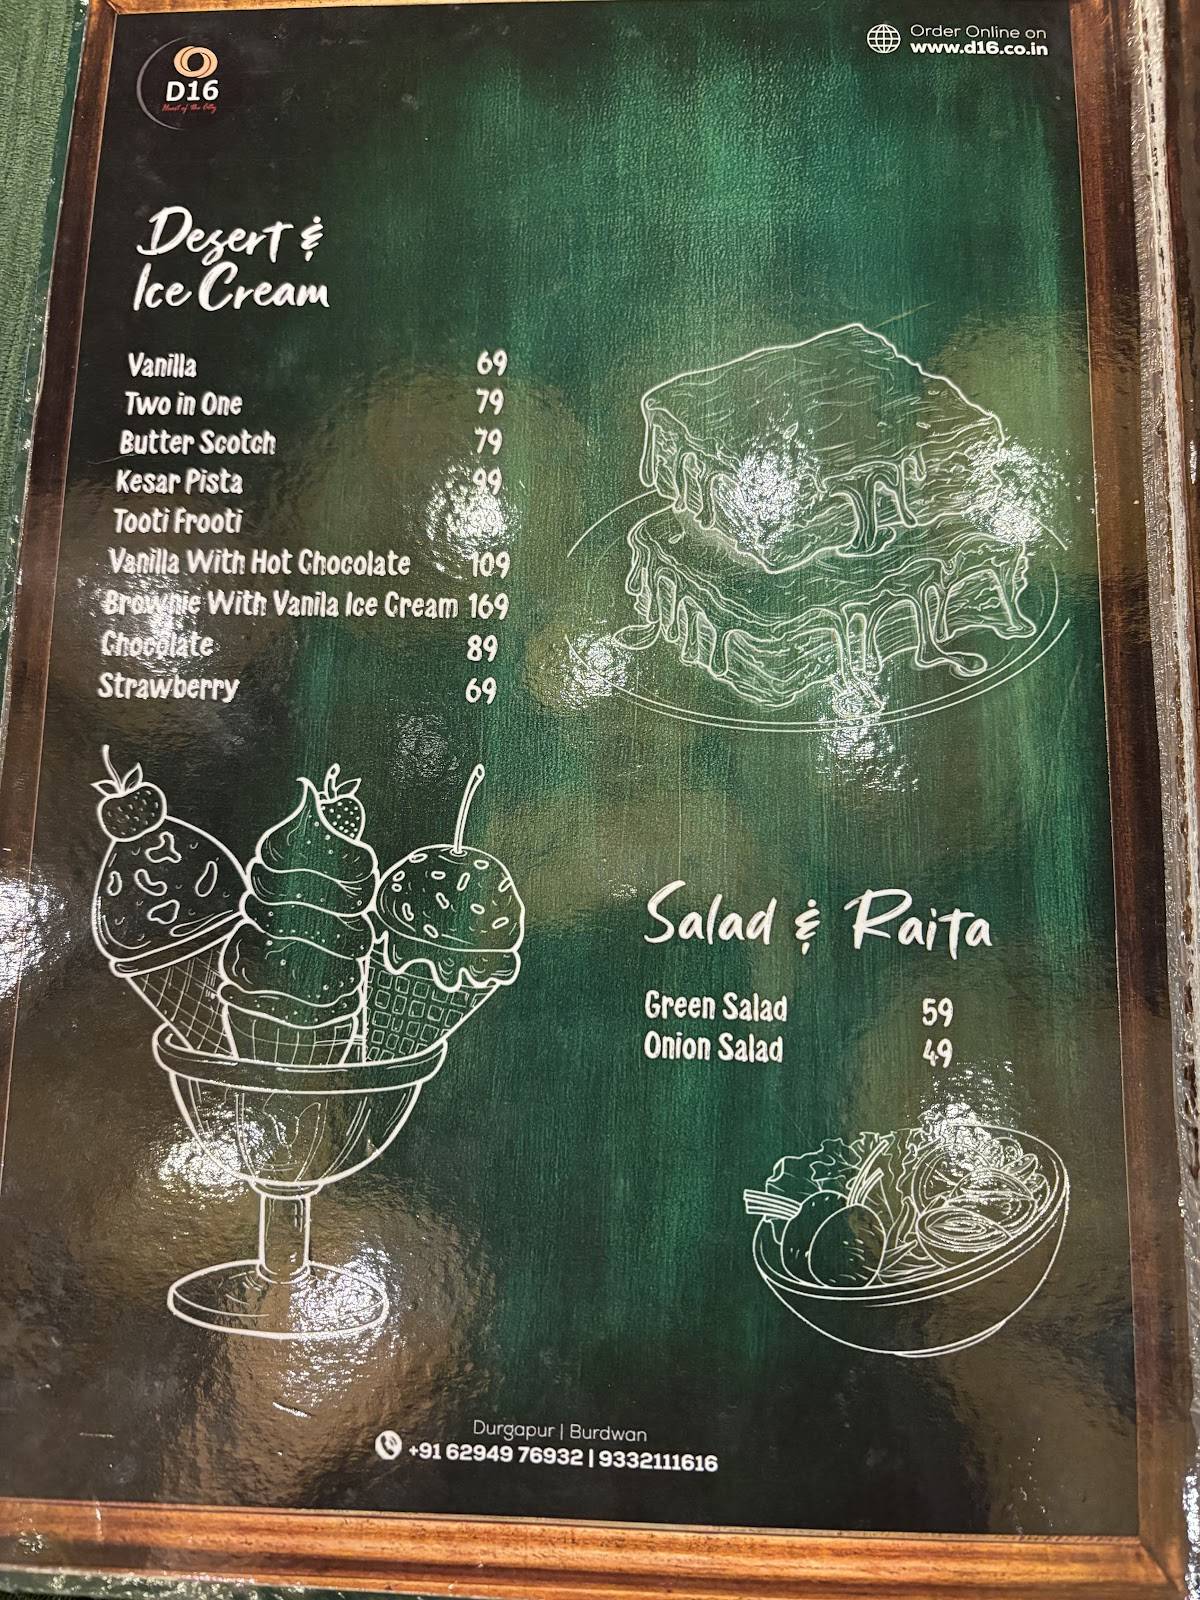 D16
Heart of the City
Order Online on
www.d16.co.in
Desert &
Ice Cream
Vanilla 69
Two in One 79
Butter Scotch 79
Kesar Pista 99
Tooti Frooti
Vanilla With Hot Chocolate 109
Brownie With Vanila Ice Cream 169
Chocolate 89
Strawberry 69
Salad & Raita
Green Salad 59
Onion Salad 49
Durgapur | Burdwan
+91 62949 76932 | 9332111616